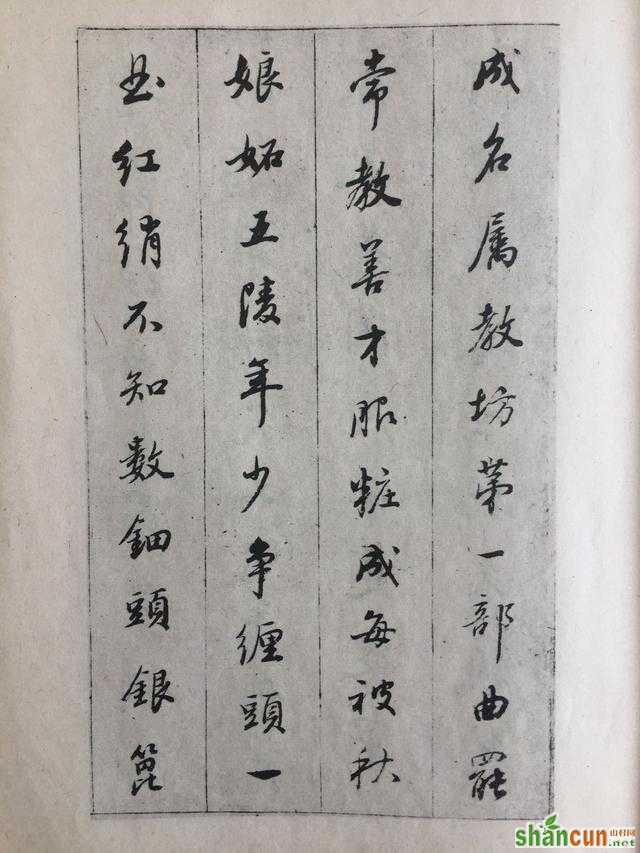 成名属教坊第一部曲罷
常教善才服粧成每被秋
娘妬五陵年少争纏頭一
曲红绡不知数鈿頭銀篦
shancun
山村网
.net